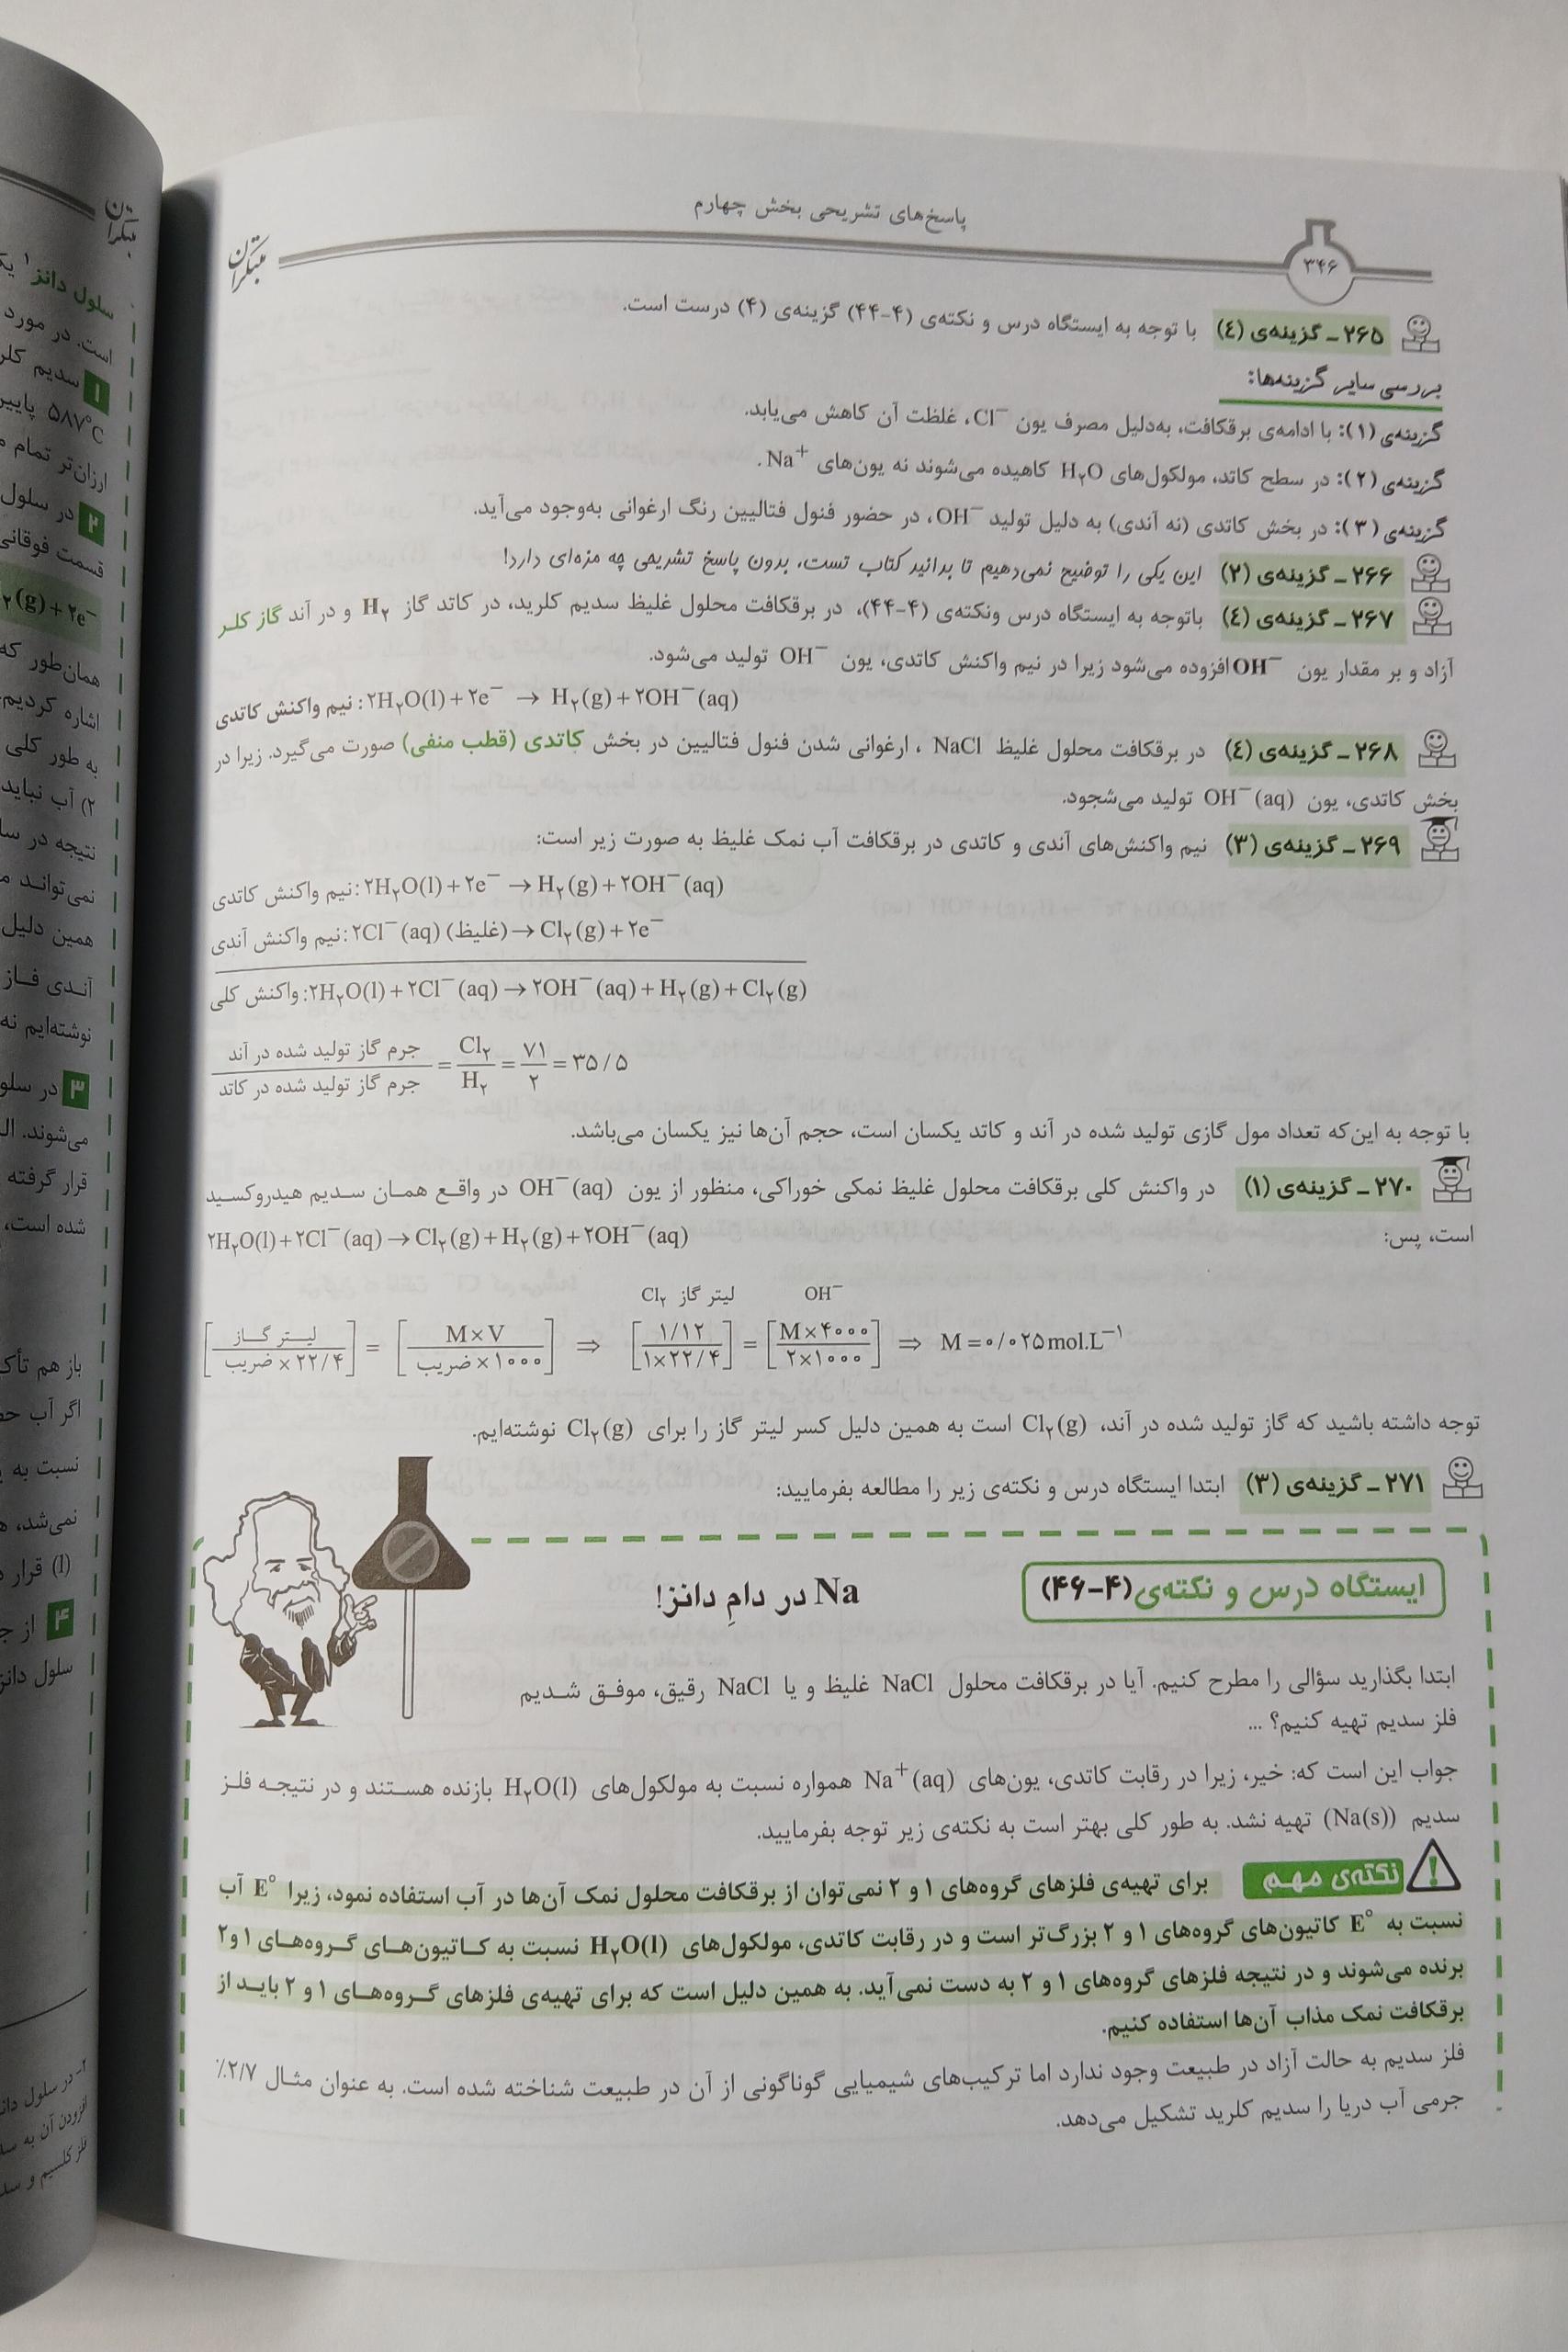 پاسخ‌های تشریحی بخش چهارم
۳۴۶
مبتکران
۲۶۵ ـ گزینه‌ی (٤) با توجه به ایستگاه درس و نکته‌ی (۴-۴۴) گزینه‌ی (۴) درست است.
بررسی سایر گزینه‌ها:
گزینه‌ی (۱): با ادامه‌ی برقکافت، به‌دلیل مصرف یون Cl⁻، غلظت آن کاهش می‌یابد.
گزینه‌ی (۲): در سطح کاتد، مولکول‌های H₂O کاهیده می‌شوند نه یون‌های Na⁺.
گزینه‌ی (۳): در بخش کاتدی (نه آندی) به دلیل تولید OH⁻، در حضور فنول فتالیین رنگ ارغوانی به‌وجود می‌آید.
۲۶۶ ـ گزینه‌ی (۲) این یکی را توضیح نمی‌دهیم تا بدانید کتاب تست، بدون پاسخ تشریحی چه مزه‌ای دارد!
۲۶۷ ـ گزینه‌ی (٤) باتوجه به ایستگاه درس ونکته‌ی (۴-۴۴)، در برقکافت محلول غلیظ سدیم کلرید، در کاتد گاز H₂ و در آند گاز کلر
آزاد و بر مقدار یون OH⁻ افزوده می‌شود زیرا در نیم واکنش کاتدی، یون OH⁻ تولید می‌شود.
نیم واکنش کاتدی : ۲H₂O(l) + ۲e⁻ → H₂(g) + ۲OH⁻(aq)
۲۶۸ ـ گزینه‌ی (٤) در برقکافت محلول غلیظ NaCl ، ارغوانی شدن فنول فتالیین در بخش کاتدی (قطب منفی) صورت می‌گیرد. زیرا در
بخش کاتدی، یون OH⁻(aq) تولید می‌شجود.
۲۶۹ ـ گزینه‌ی (۳) نیم واکنش‌های آندی و کاتدی در برقکافت آب نمک غلیظ به صورت زیر است:
نیم واکنش کاتدی : ۲H₂O(l) + ۲e⁻ → H₂(g) + ۲OH⁻(aq)
نیم واکنش آندی : ۲Cl⁻(aq) (غلیظ) → Cl₂(g) + ۲e⁻
واکنش کلی : ۲H₂O(l) + ۲Cl⁻(aq) → ۲OH⁻(aq) + H₂(g) + Cl₂(g)
جرم گاز تولید شده در آند / جرم گاز تولید شده در کاتد = Cl₂ / H₂ = ۷۱ / ۲ = ۳۵/۵
با توجه به این‌که تعداد مول گازی تولید شده در آند و کاتد یکسان است، حجم آن‌ها نیز یکسان می‌باشد.
۲۷۰ ـ گزینه‌ی (۱) در واکنش کلی برقکافت محلول غلیظ نمکی خوراکی، منظور از یون OH⁻(aq) در واقع همان سدیم هیدروکسید
است، پس: ۲H₂O(l) + ۲Cl⁻(aq) → Cl₂(g) + H₂(g) + ۲OH⁻(aq)
لیتر گاز Cl₂ OH⁻
[لیتر گاز / ضریب × ۲۲/۴] = [M×V / ضریب × ۱۰۰۰] ⇒ [۱/۱۲ / ۱×۲۲/۴] = [M×۴۰۰۰ / ۲×۱۰۰۰] ⇒ M = ۰/۰۲۵ mol.L⁻¹
توجه داشته باشید که گاز تولید شده در آند، Cl₂(g) است به همین دلیل کسر لیتر گاز را برای Cl₂(g) نوشته‌ایم.
۲۷۱ ـ گزینه‌ی (۳) ابتدا ایستگاه درس و نکته‌ی زیر را مطالعه بفرمایید:
ایستگاه درس و نکته‌ی (۴-۴۶)
Na در دامِ دانز!
ابتدا بگذارید سؤالی را مطرح کنیم. آیا در برقکافت محلول NaCl غلیظ و یا NaCl رقیق، موفق شدیم
فلز سدیم تهیه کنیم؟ ...
جواب این است که: خیر، زیرا در رقابت کاتدی، یون‌های Na⁺(aq) همواره نسبت به مولکول‌های H₂O(l) بازنده هستند و در نتیجه فلز
سدیم (Na(s)) تهیه نشد. به طور کلی بهتر است به نکته‌ی زیر توجه بفرمایید.
نکته‌ی مهم برای تهیه‌ی فلزهای گروه‌های ۱ و ۲ نمی‌توان از برقکافت محلول نمک آن‌ها در آب استفاده نمود، زیرا E° آب
نسبت به E° کاتیون‌های گروه‌های ۱ و ۲ بزرگ‌تر است و در رقابت کاتدی، مولکول‌های H₂O(l) نسبت به کاتیون‌های گروه‌های ۱ و ۲
برنده می‌شوند و در نتیجه فلزهای گروه‌های ۱ و ۲ به دست نمی‌آید. به همین دلیل است که برای تهیه‌ی فلزهای گروه‌های ۱ و ۲ باید از
برقکافت نمک مذاب آن‌ها استفاده کنیم.
فلز سدیم به حالت آزاد در طبیعت وجود ندارد اما ترکیب‌های شیمیایی گوناگونی از آن در طبیعت شناخته شده است. به عنوان مثال ۲/۷٪
جرمی آب دریا را سدیم کلرید تشکیل می‌دهد.
مبتکران
سلول دانز¹
است. در مورد
۱ سدیم
۵۸۷°C پایین
ارزان‌تر تمام
۲ در سلول
قسمت فوقانی
(g) + ۲e⁻
همان‌طور که
اشاره کردیم
به طور کلی
۲) آب نباید
نتیجه در
نمی‌تواند
همین دلیل
آندی فاز
نوشته‌ایم نه
۳ در
می‌شوند.
قرار گرفته
شده است،
باز هم
اگر آب
نسبت به
نمی‌شد،
(l) قرار
۴ از
سلول دانز
۱ـ در سلول
افزودن آن به
فلز کلسیم و